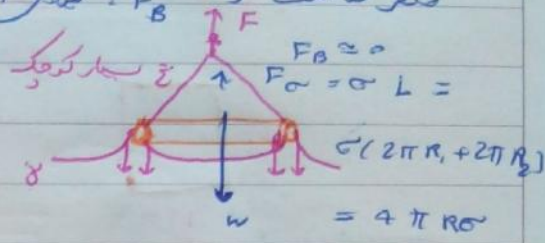 F_B
F
F_B ≃ 0
بسیار کوچک
F_σ = σ L =
σ(2πR₁+2πR₂)
γ
w
= 4πRσ